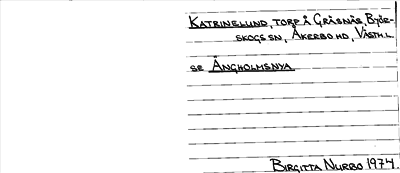 KATRINELUND, TORP Å GRÄSNÄS, BJÖR-
SKOGS SN, ÅKERBO HD, VÄSTM.L.
SE ÄNGHOLMSNYA
BIRGITTA NURBO 1974.